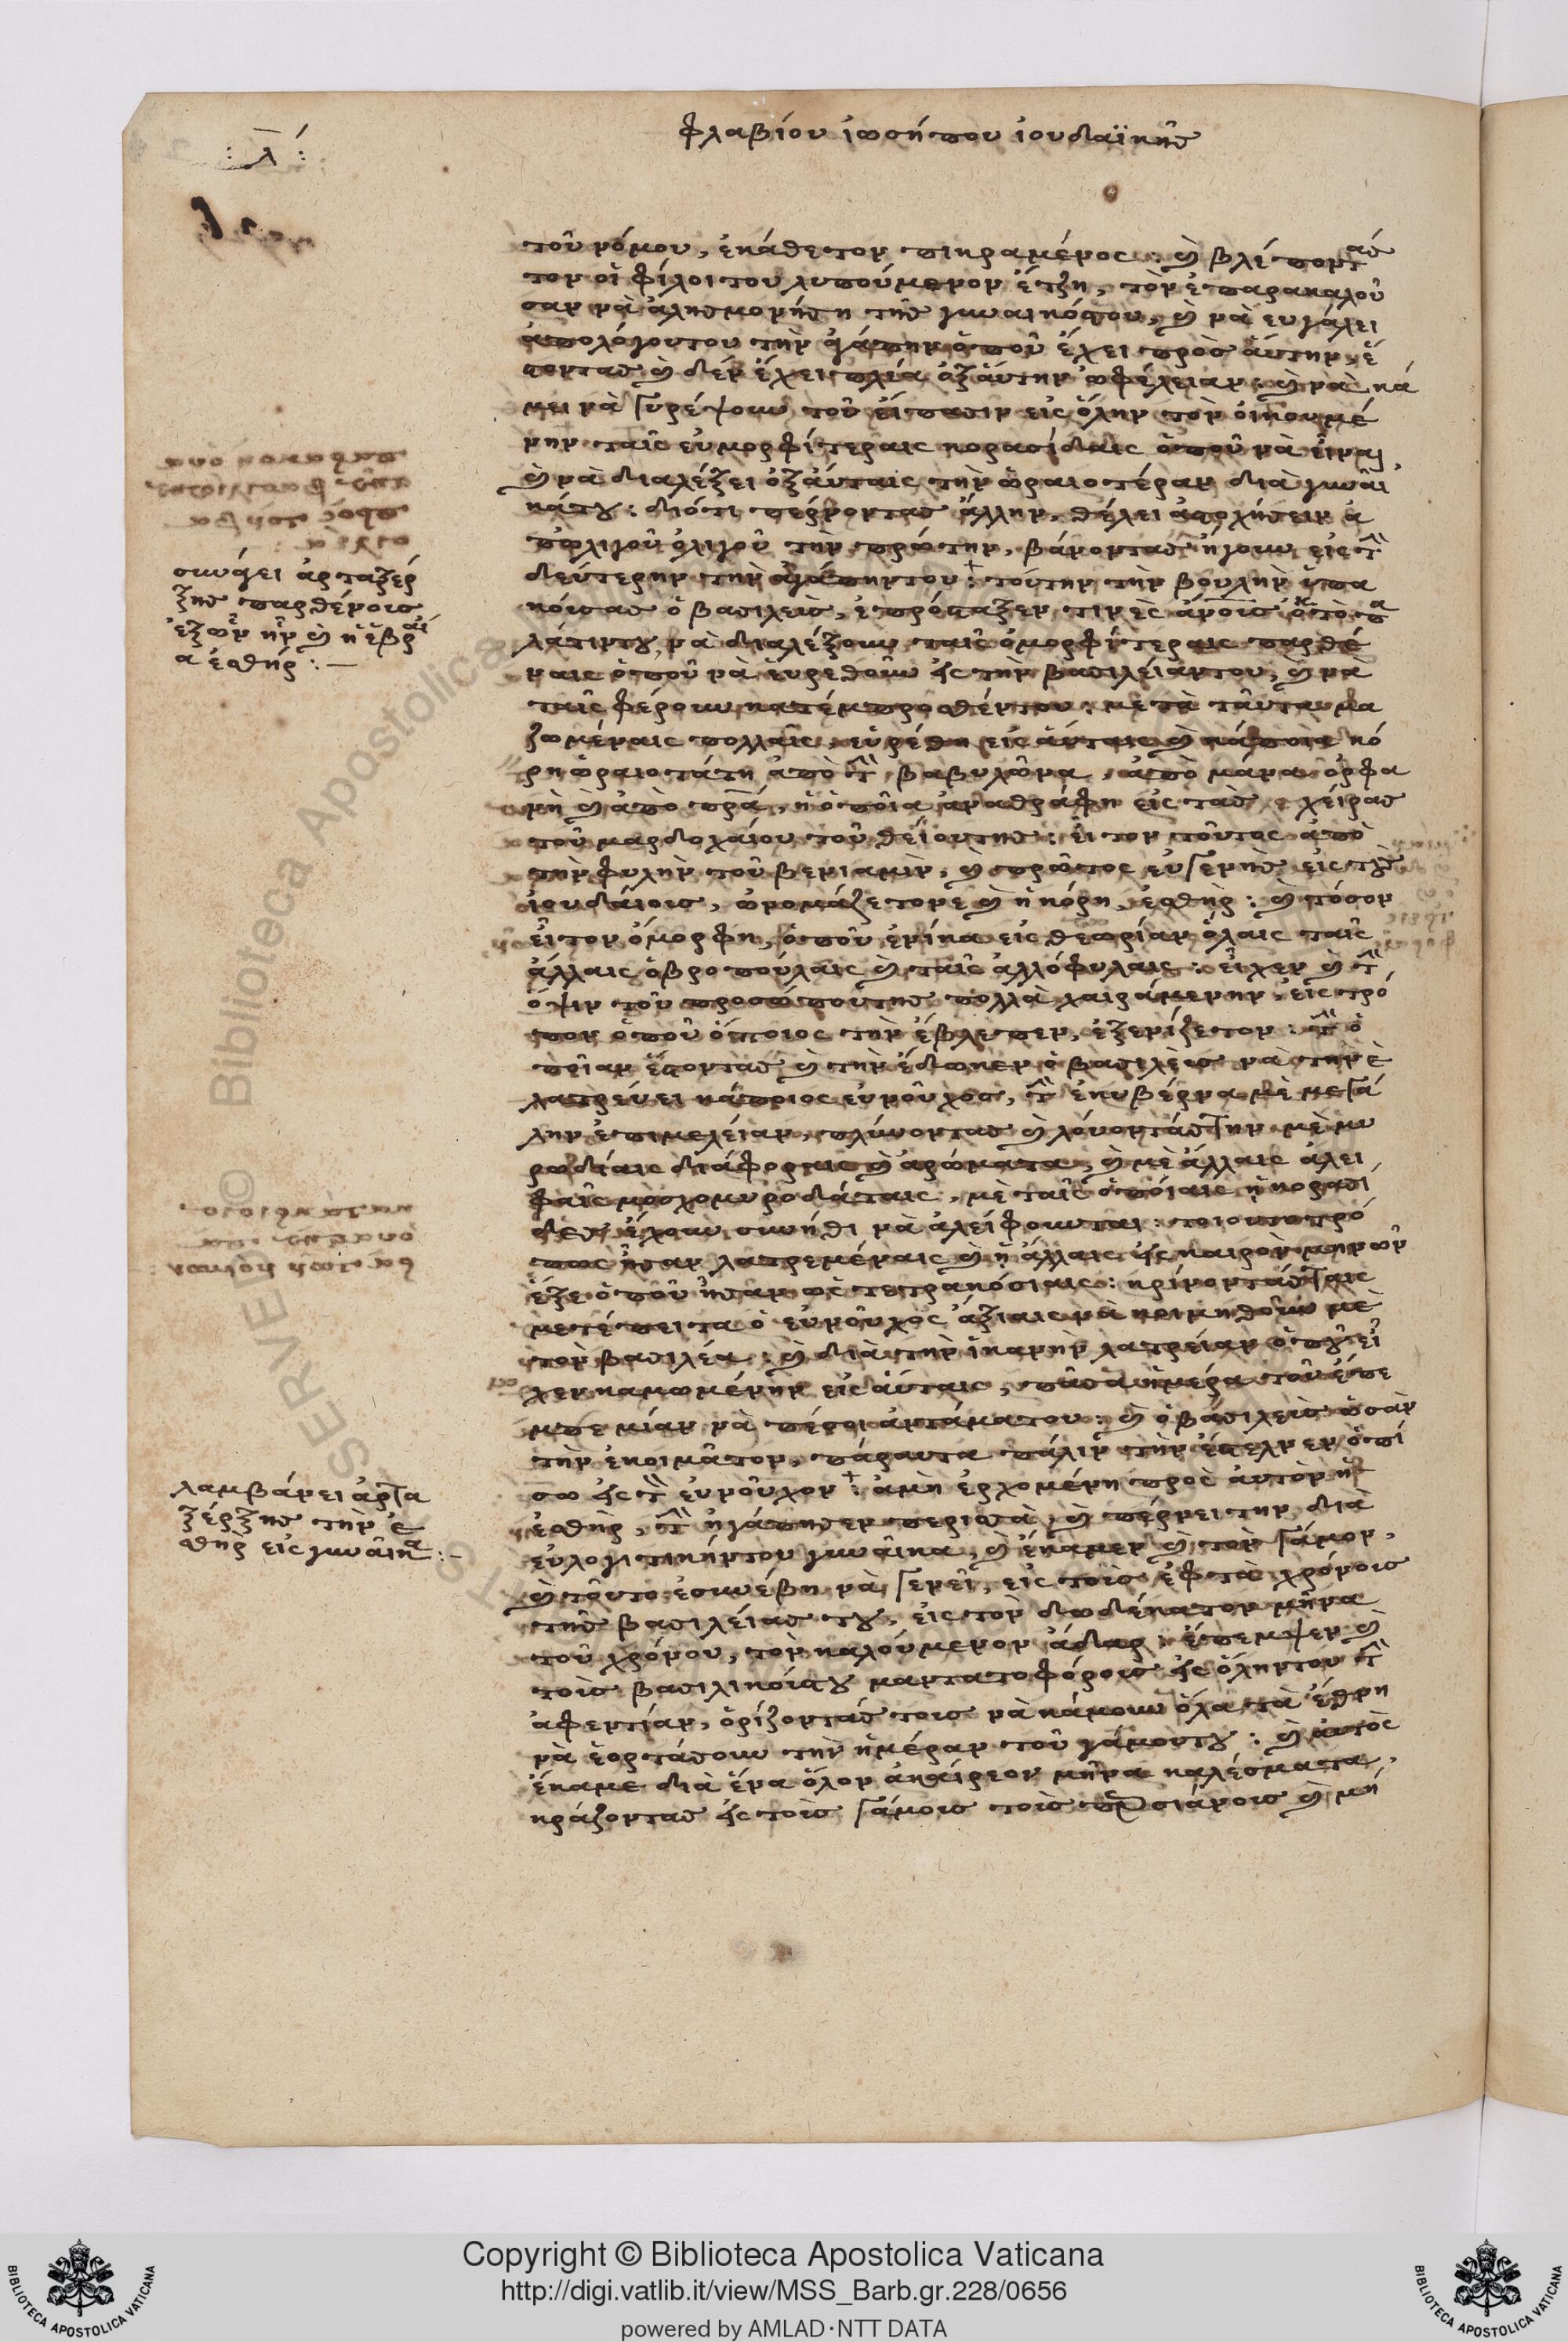 φλαβίου ἰωσήπου ἰουδαϊκῆς
: λ̅ :
τοῦ νόμου, ἐκάθετον πικραμένος : ὲ βλέποντάς
τον οἱ φίλοι του λυπούμενον ἔτζη, τὸν ἐπαρακαλοῦ
σαν νὰ ἀλησμονήση τῆς γυναικός του, ὲ νὰ ευγάλει
ἀπολόγουντου τὴν ἀγάπην ὁποῦ ἔχει πρὸς ἀύτην, ἔ
σοντας ὲ δὲν ἔχει πλέα ἀξἀύτην ὠφέλειαν : ὲ νὰ κά
μει νὰ γυρέψουν τοῦ εἴπασιν εἰς ὅλην τὸν ὀικουμέ
νην ταῖς ευμορφίτεραις κορασίδαις ὁποῦ νὰ εἶναι
ὲ νὰ διαλέξει ὀξἀύταις τὴν ὡραιοτέραν διὰ γυναῖ
κάτου : διότι πέρνοντας ἄλλην, θέλει ἀπολήσειν ἀ
πολιγοῦ ὀλιγοῦ τὴν πρώτην, βάνοντας ἤγουν εἰς τὴν
δεύτερην τὴν ἀγάπηντου : τούτην τὴν βουλὴν ἐπα
κόισας ὁ βασιλεὺς, ἐπρόσταξεν τινὲς ἀν̅οις ἀπὸ τὸ πα
λάτιντου νὰ διαλέξουν ταῖς ὀμορφίτεραις παρθέ
ναις ὁποῦ νὰ ἑυρεθοῦν εἰς τὴν βασιλείαντου, ὲ νὰ
ταῖς φέρουν κατέμπροσθέντου : μετὰ ταῦτα μα
ζωμέναις πολλαῖς, εὑρέθη εἰς ἀύταις ὲ κάποια κό
ρη ὡραιοτάτη ἀπὸ τὴν βαβυλῶνα, ἀπὸ μάνα ὀρφα
νὴ ὲ ἀπὸ πρ̅α, ἡ ὁποῖα ἀναθράφη εἰς τὰς χεῖρας
τοῦ μαρδοχαίου τοῦ θείουτης : εἶτον τοῦτος ἀπὸ
τὴν φυλὴν τοῦ βενιαμὶν, ὲ πρῶτος ευγενὴς εἰς τοὺς
ἰουδαίοις, ὠνομάζετονε ὲ ἡ κόρη, ἐσθὴρ : ὲ πόσον
εἶτον ὄμορφη, ὁποῦ ἐνίκα εἰς θεωρίαν ὅλαις ταῖς
ἄλλαις ὀβροπούλαις ὲ ταῖς ἀλλόφυλαις : εἶχεν ὲ τὴν
ὄψιν τοῦ προσώπουτης πολλὰ χαιράμενην, εἰς τρό
πον ὁποῦ ὅποιος τὴν ἔβλεπεν, ἐξενίζετον : τὴν ὁ
ποῖαν ἔσοντας ὲ τὴν ἔδωκεν ὁ βασιλεὺς νὰ τὴν ἐ
λατρεύει κάποιος ευνοῦχος, τὴν ἐκυβέρνα μὲ μεγά
λην ἐπιμελείαν, πλύνοντας ὲ λούοντάς την μὲ μυ
ρωδίαις διάφοραις ὲ ἀρώματα, ὲ μὲ ἄλλαις ἀλει
φαῖς μοσχομυροδάταις, μὲ ταῖς ὁποίαις ἡ κορασί
δες ἔχουν συνήθι νὰ ἀλείφουνται : τοιουτοτρό
πως ἦταν λατρεμέναις ὲ ἡ ἄλλαις εἰς καιρὸν μηνῶν
ἕξε ὁποῦ ἦταν ὡς τετρακόσιαις : κρίνοντάς ταις
μετέπειτα ὁ ευνοῦχος ἄξιαις νὰ κοιμηθοῦν μὲ
τὸν βασιλέα : ὲ διὰ τὴν ἱκανὴν λατρείαν ὁποῦ εἶ
χεν καμωμένην εἰς ἀύταις, πᾶσα ἡμέρα τοῦ ἔπε
μπε μίαν νὰ πέσοι ἀντάματου : ὲ ὁ βασιλεὺς ὡσὰν
τὴν ἐκοιμᾶτον, πάραυτα πάλιν τὴν ἔστελνεν ὀπί
σω εἰς τὸν ευνοῦχον : ἀμὴ ἐρχομένη πρὸς ἀυτὸν ἡ
ἐσθὴρ, τὴν ἠγάπησεν περισσὰ, ὲ πέρνει την διὰ
εὐλογιτικήντου γυναῖκα, ὲ ἔκαμεν ὲ τὸν γάμον,
ὲ τοῦτο ἐσυνέβη νὰ γενεῖ, εἰς τοὺς ἑφτὰ χρόνοις
τῆς βασιλείας του, εἰς τὸν δωδέκατον μῆνα
τοῦ χρόνου, τὸν καλούμενον ἄδαρ : ἔπεμψεν ὲ
τοὺς βασιλικοίςτου μαντατοφόροις εἰς ὅληντου τὴν
ἀφεντίαν, ὁρίζοντάς τοις νὰ κάμουν ὅλα τὰ ἔθνη
νὰ ἑορτάσουν τὴν ἡμέραν τοῦ γάμουντου : ὲ ἀυτὸς
ἔκαμε διὰ ἕνα ὅλον ἀκαίρεον μῆνα καλέσματα,
κράζοντας εἰς τοὺς γάμοις τοὺς περσιάνοις ὲ μή
συνάγει ἀρταξέρ
ξης παρθένοις
ἐξὧν ἦν ὲ ἡ ἑβραί
α ἐσθήρ : —
λαμβάνει ἀρτα
ξέρξης τὴν ἐ
σθὴρ εἰς γυναῖκα : —
Copyright © Biblioteca Apostolica Vaticana
http://digi.vatlib.it/view/MSS_Barb.gr.228/0656
powered by AMLAD·NTT DATA
BIBLIOTECA APOSTOLICA VATICANA
BIBLIOTECA APOSTOLICA VATICANA